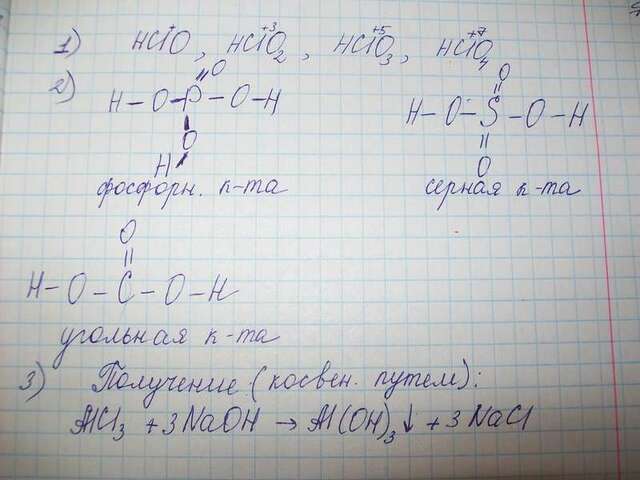 1) HCl⁺O, HCl⁺³O₂, HCl⁺⁵O₃, HCl⁺⁷O₄
2)
O O
H-O-P-O-H H-O-S-O-H
O O
H
фосфорн. к-та серная к-та
O
H-O-C-O-H
угольная к-та
3) Получение (косвен. путем):
AlCl₃ + 3NaOH → Al(OH)₃↓ + 3NaCl